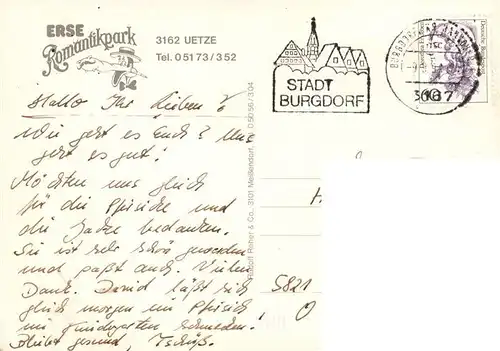 ERSE
Romantikpark
3162 UETZE
Tel. 05173/352
STADT
BURGDORF
3167
Hallo Ihr Lieben!
Wie geht es Euch? Uns
geht es gut!
Möchten uns gleich
für die Pfirsiche und
die Jacke bedanken.
Sie ist sehr schön geworden
und paßt auch. Vielen
Dank. David läßt sich
gleich morgen im Pfirsich
im Kindergarten schmecken.
Bleibt gesund, Tschüß.
5821